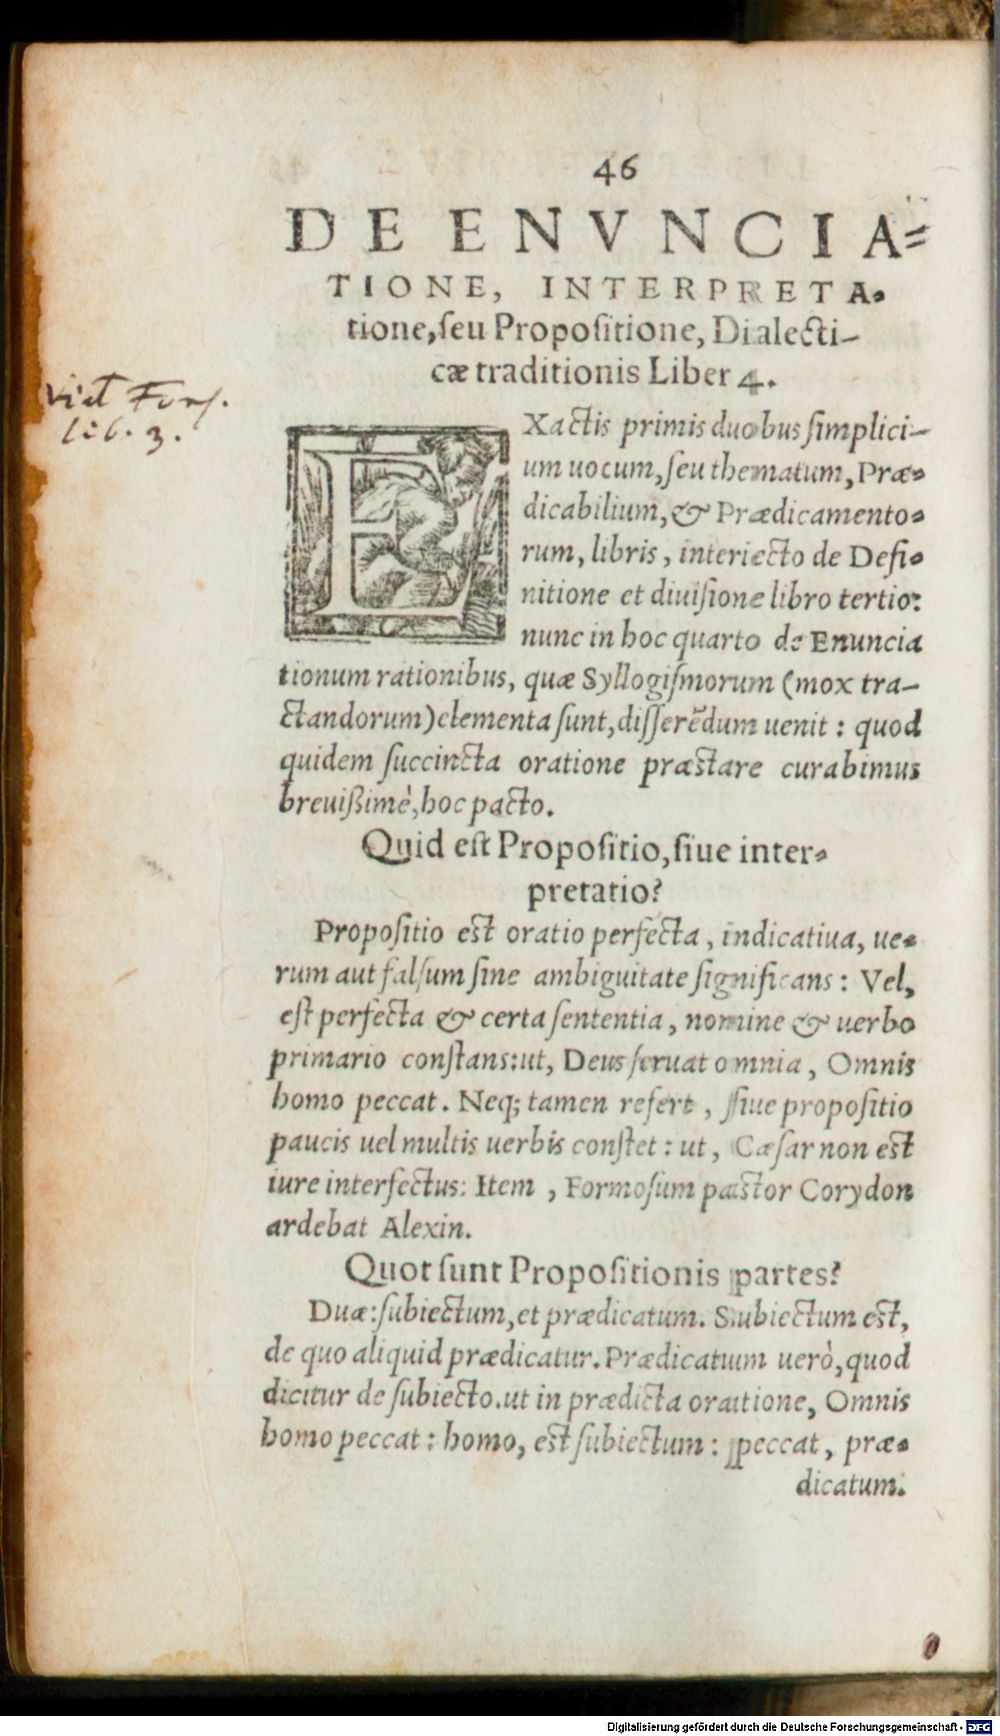 46
DE ENVNCIA=
TIONE, INTERPRETA-
tione, ſeu Propoſitione, Dialecti-
cæ traditionis Liber 4.
lib. 3.
EXactis primis duobus ſimplici-
um uocum, ſeu thematum, Præ-
dicabilium, & Prædicamento-
rum, libris, interiecto de Defi-
nitione et diuiſione libro tertio:
nunc in hoc quarto de Enuncia
tionum rationibus, quæ Syllogiſmorum (mox tra-
ctandorum) elementa ſunt, diſſerẽdum uenit : quod
quidem ſuccincta oratione præſtare curabimus
breuißimè, hoc pacto.
Quid eſt Propoſitio, ſiue inter-
pretatio?
Propoſitio eſt oratio perfecta, indicatiua, ue-
rum aut falſum ſine ambiguitate ſignificans : Vel,
eſt perfecta & certa ſententia, nomine & uerbo
primario conſtans: ut, Deus ſeruat omnia, Omnis
homo peccat. Neq; tamen refert, ſiue propoſitio
paucis uel multis uerbis conſtet : ut, Cæſar non eſt
iure interfectus: Item, Formoſum paſtor Corydon
ardebat Alexin.
Quot ſunt Propoſitionis partes?
Duæ: ſubiectum, et prædicatum. Subiectum eſt,
de quo aliquid prædicatur. Prædicatum uerò, quod
dicitur de ſubiecto. ut in prædicta oratione, Omnis
homo peccat : homo, eſt ſubiectum : peccat, præ-
dicatum.
Digitalisierung gefördert durch die Deutsche Forschungsgemeinschaft - DFG